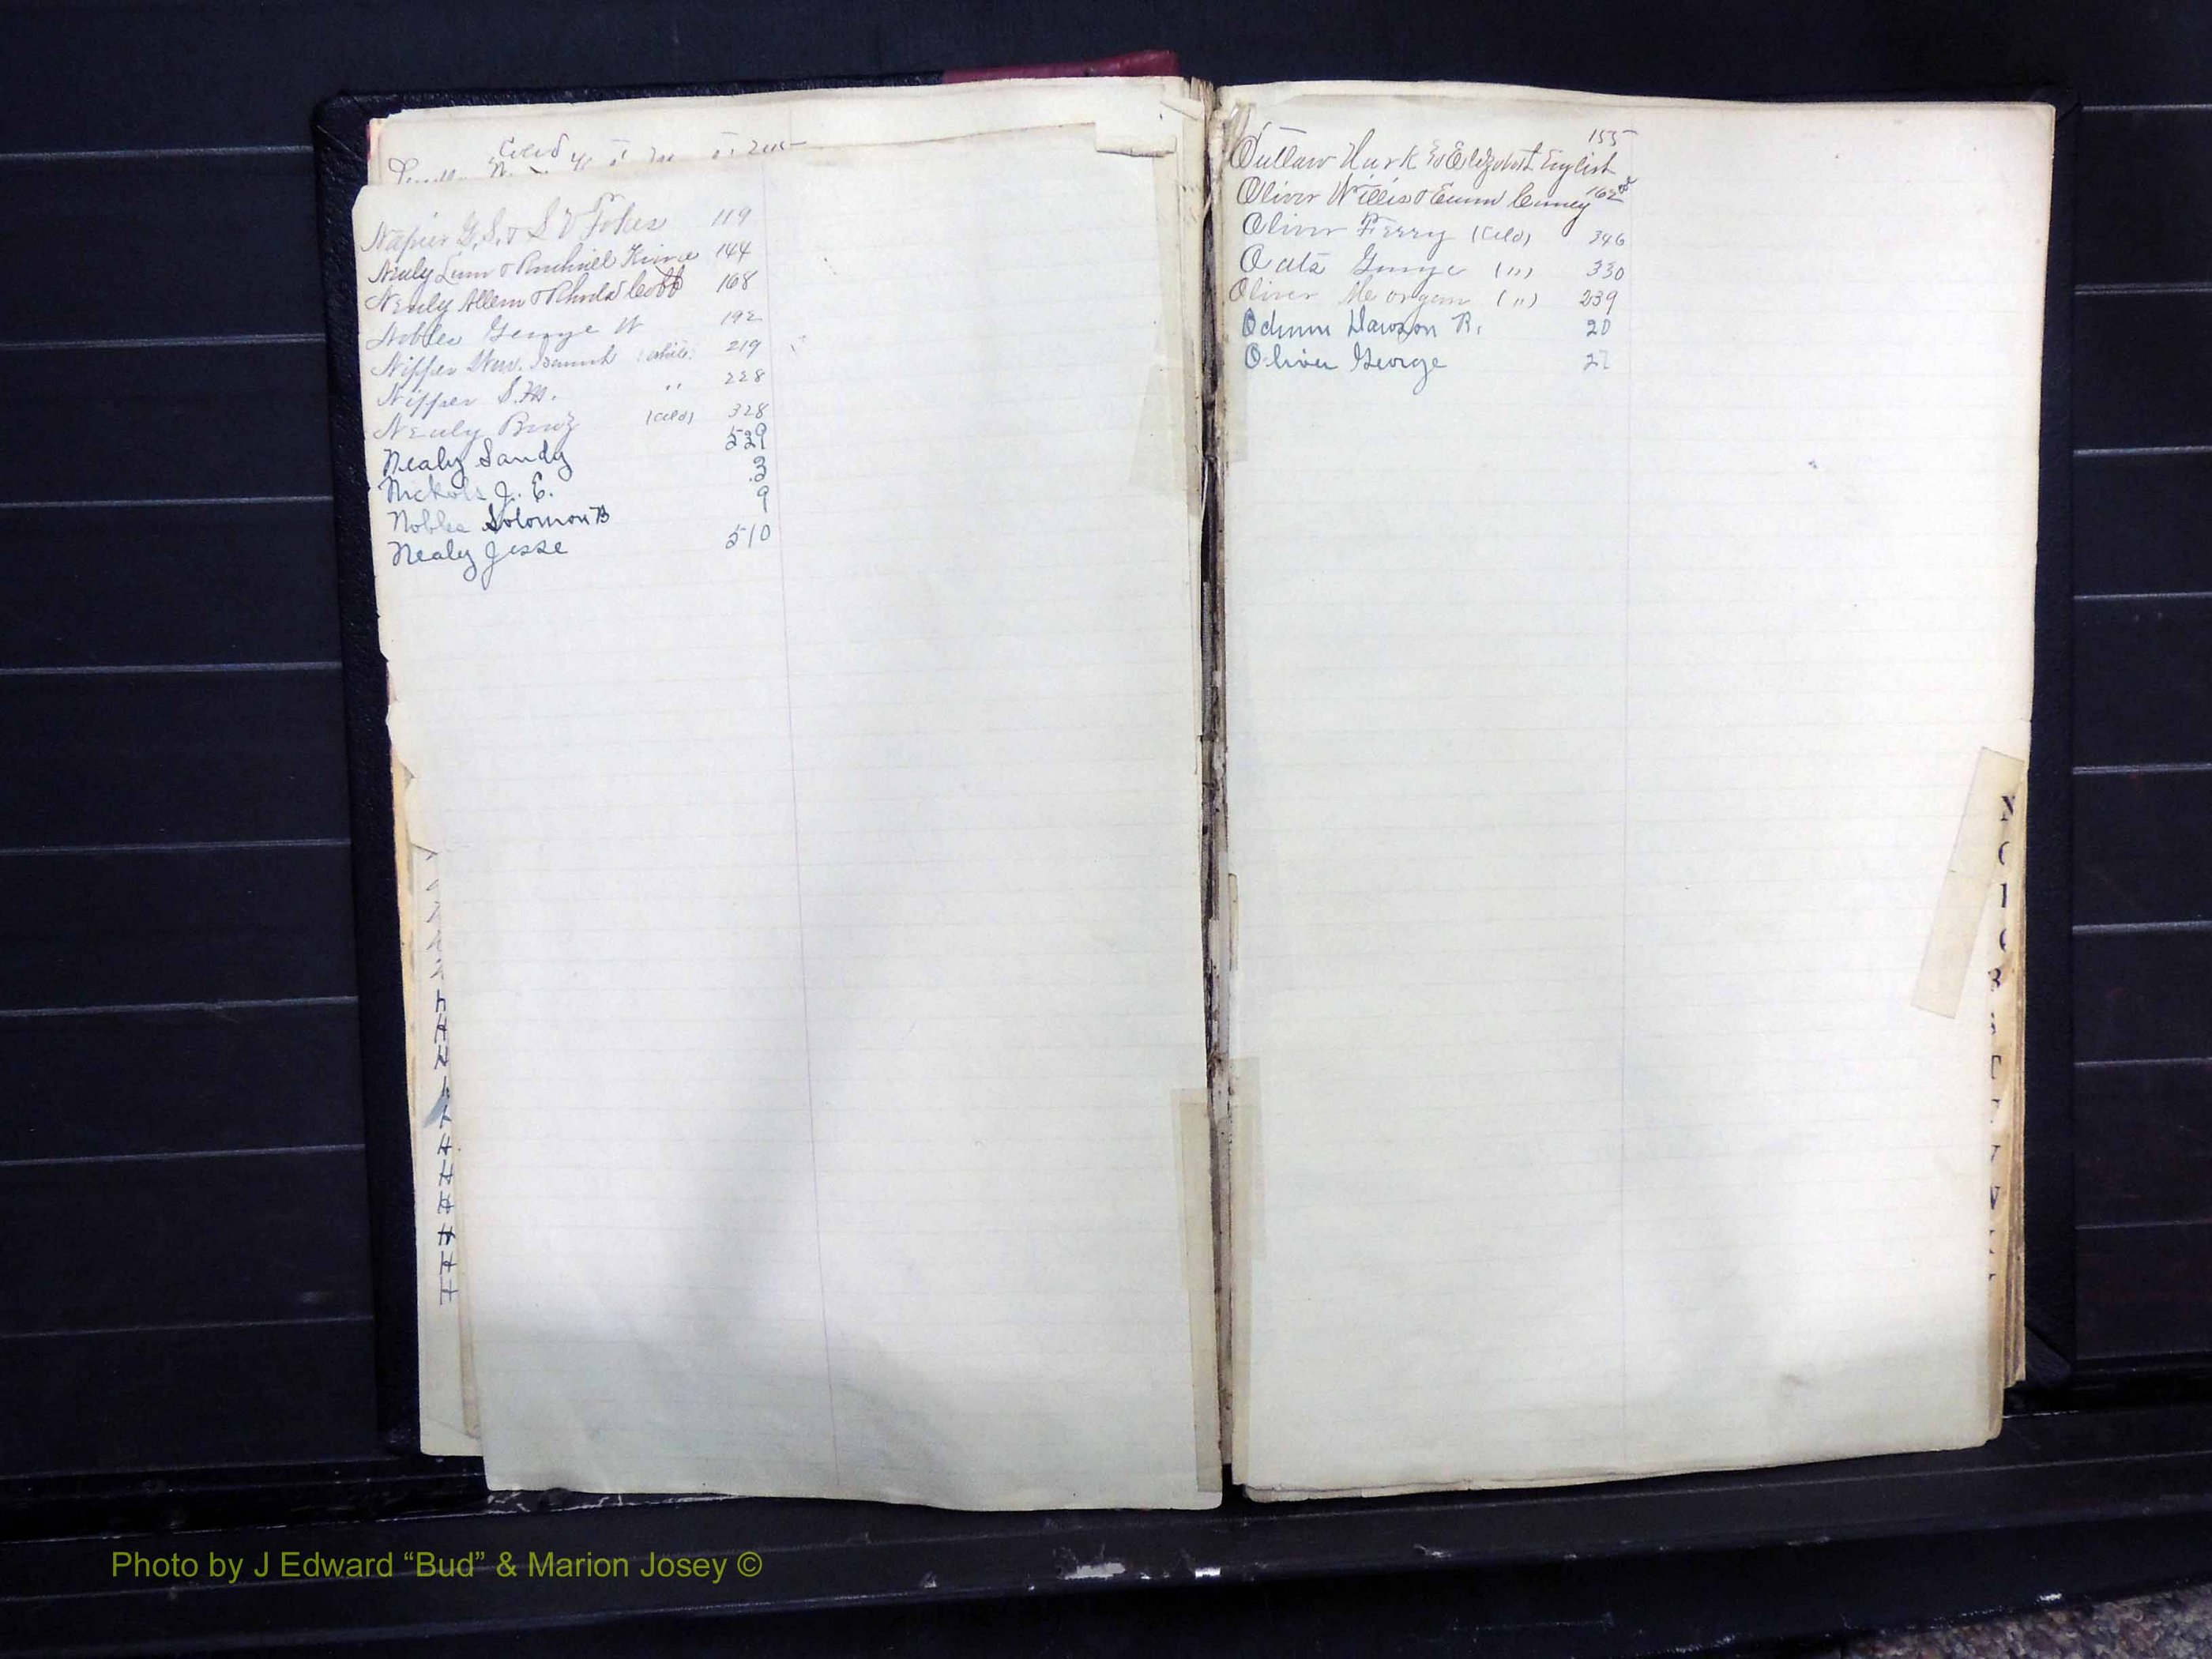 Napier G. S. & S V Tokes 119
Nealy Lum & 144
Nealy Allen & Rhoda Cobb 168
Nobles George W 192
Nipper (white) 219
Nipper S. M. " 228
Nealy (cold) 328
Nealy Sandy 529
Nickols J. E. 3
Nobles Solomon B 9
Nealy Jesse 510
155
Outlaw Hark to Elizabeth English
Oliver Willis & 162
Oliver Perry (Cold) 346
Oats George (") 330
Oliver Morgan (") 239
Odum Dawson R. 20
Oliver George 27
Photo by J Edward “Bud” & Marion Josey ©